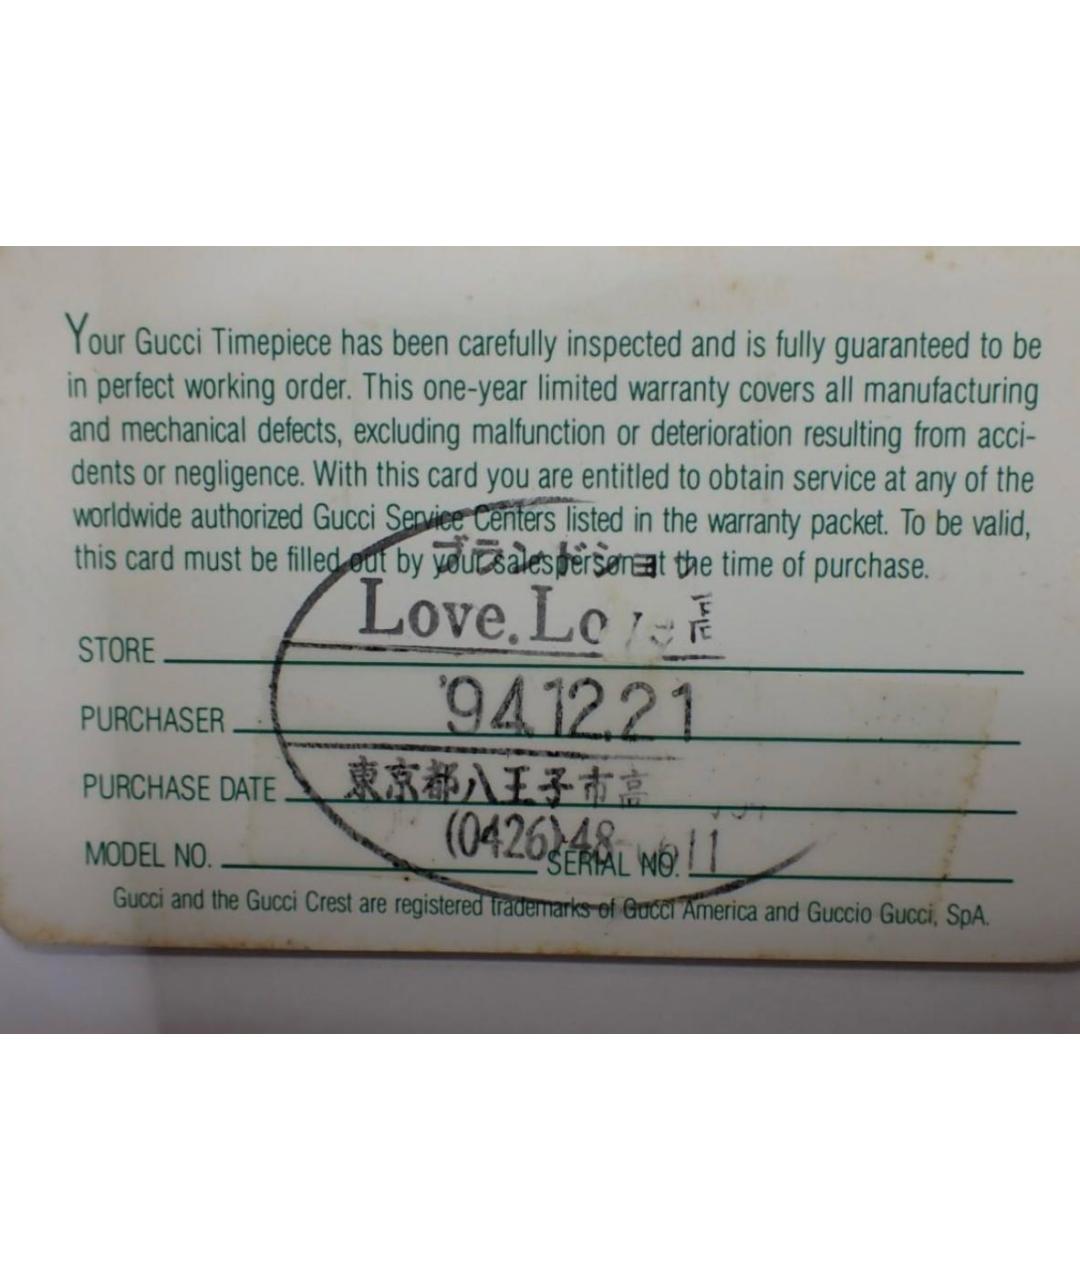 Your Gucci Timepiece has been carefully inspected and is fully guaranteed to be
in perfect working order. This one-year limited warranty covers all manufacturing
and mechanical defects, excluding malfunction or deterioration resulting from acci-
dents or negligence. With this card you are entitled to obtain service at any of the
worldwide authorized Gucci Service Centers listed in the warranty packet. To be valid,
this card must be filled out by your salesperson at the time of purchase.
ブランドショ
Love.
STORE
'94.12.21
PURCHASER
東京都八王子市高
PURCHASE DATE
(0426)48
MODEL NO. SERIAL NO.
Gucci and the Gucci Crest are registered trademarks of Gucci America and Guccio Gucci, SpA.